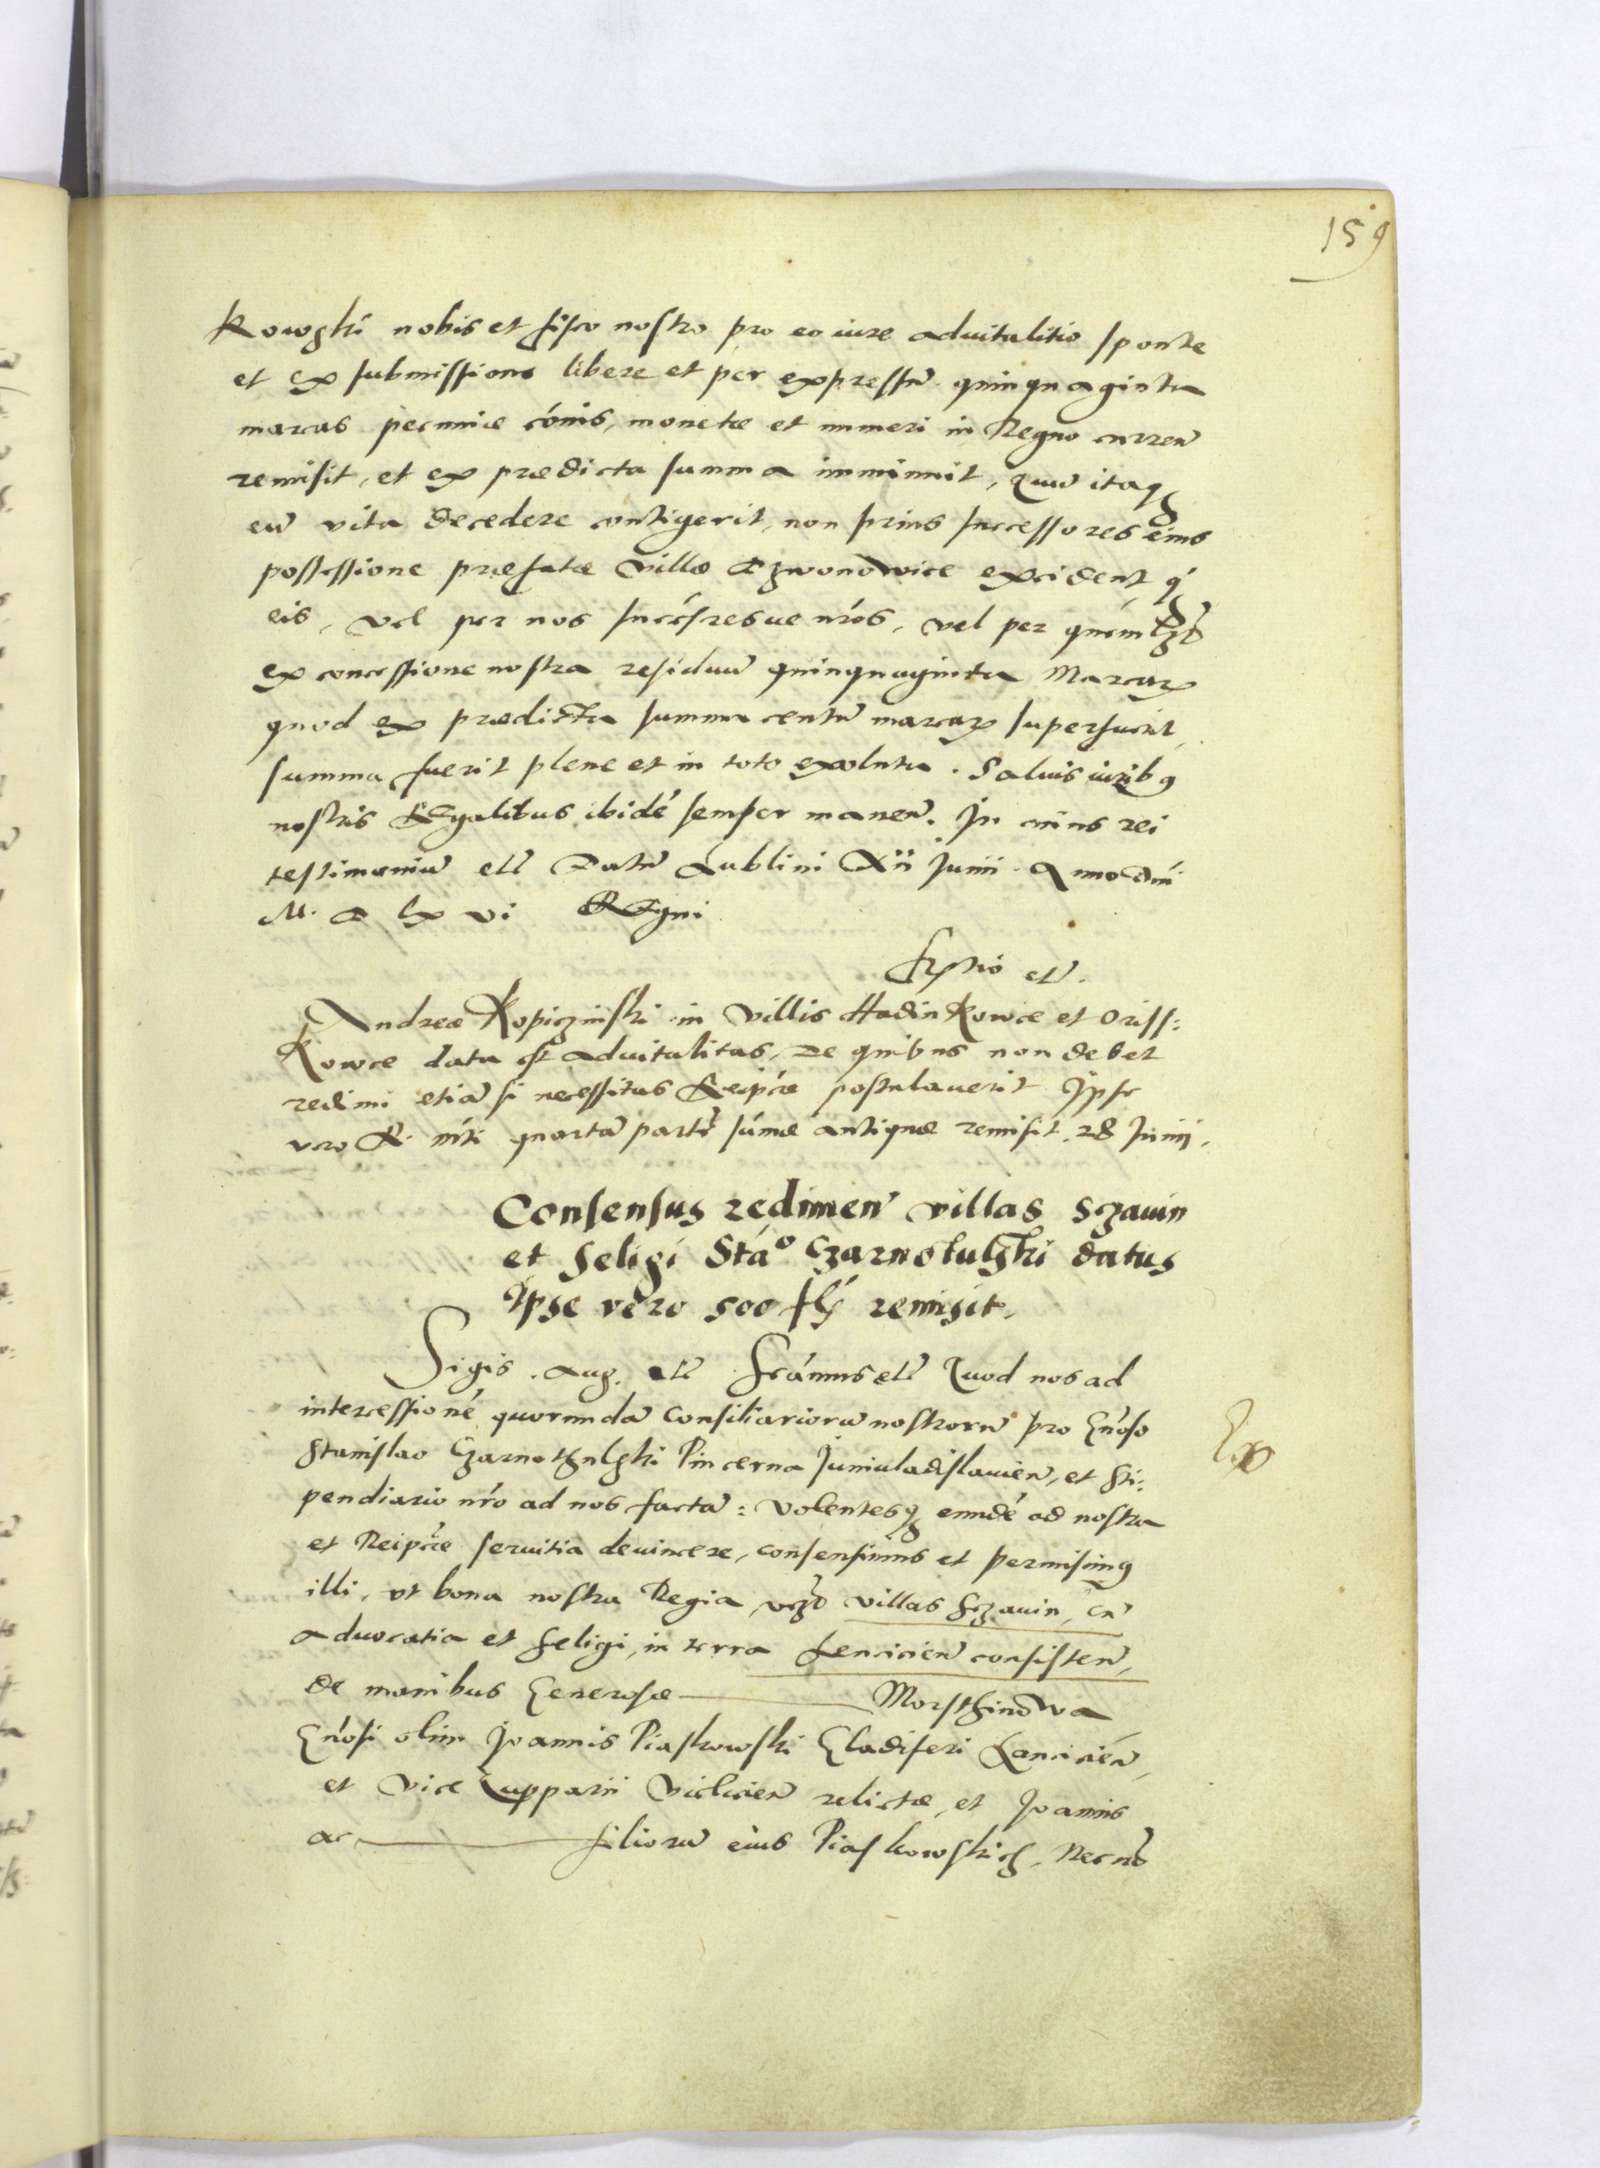 159
kowski nobis et fisco nostro pro eo iure aduitalitio sponte
et ex submissione libere et per expressum quinquaginta
marcas pecuniæ cõis, monetæ et numeri in Regno curren̄
remisit, et ex prædicta summa imminuit, Quum itaqꝫ
eū vita decedere contigerit, non prius successores eius
possessione præfatæ villæ Dzwonowice excident, q̃
eis, vel per nos succ̃sresue nr̃os, vel per quemlꝫꝫ
ex concessione nostra residuū quinquaginta Marcarꝝ
quod ex prædicta summa centū marcarꝝ superfuerit
summa fuerit plene et in toto exoluta. Saluis iuribꝫ
nostris Regalibus ibidē semper manen̄. In cuius rei
testimoniū etc̃ Datū Lublini XII Junii Anno dñi
M. D lx vi Regni
Sr̃ptio etc̃.
Andreæ Kopiczinski in villis Hadinkowce et Oriss:
kowce data est aduitalitas, De quibus non debet
redimi etiā si necessitas Reipcæ postulauerit Ipse
vero R. mti quartā partē sūmæ antiquæ remisit. 28 Junij.
Consensus redimen̄ villas Sczawin
et Seligi Stao Czarnotulski datus
Ipse vero 500 fl remisit.
Sigis. Aug. etc̃ Sr̃amus etc̃ Quod nos ad
intercessionē quorundā Consiliariorū nostrorū pro Gn̄oso
Stanislao Czarnothulski Pincerna Juniuladislauien̄, et sti:
pendiario nr̃o ad nos factā: volentesqꝫ eundē ad nostra
et Reipcæ seruitia deuincere, consensimus et permisimꝫ
illi, vt bona nostra Regia, vcꝫ villas Sczawin, cū
aduocatia et Seligi, in terra Lencicien̄ consisten̄,
de manibus Generosæ ——— Morsthinowa
Gn̄osi olim Joannis Piaskowski Gladiferi Lancicien̄,
et Vice Zupparii Vielicien̄ relictæ, et Joannis
ac ——— filiorū eius Piaskowskich, Necnō